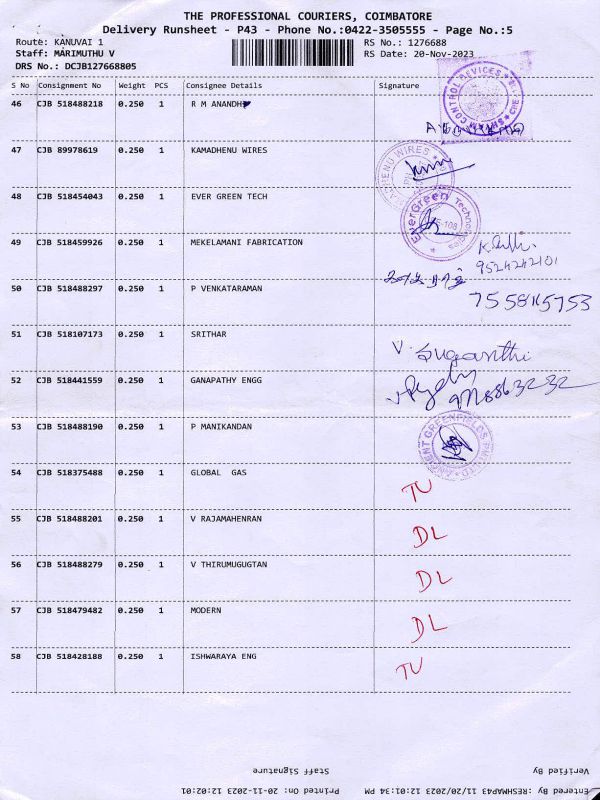 THE PROFESSIONAL COURIERS, COIMBATORE
Delivery Runsheet - P43 - Phone No.:0422-3505555 - Page No.:5
Route: KANUVAI 1 RS No.: 1276688
Staff: MARIMUTHU V RS Date: 20-Nov-2023
DRS No.: DCJB127668805
S No Consignment No Weight PCS Consignee Details Signature
46 CJB 518488218 0.250 1 R M ANANDH
CONTROL DEVICES
47 CJB 89978619 0.250 1 KAMADHENU WIRES
KAMADHENU WIRES
48 CJB 518454043 0.250 1 EVER GREEN TECH
EverGreen Technologies
49 CJB 518459926 0.250 1 MEKELAMANI FABRICATION
9524242101
50 CJB 518488297 0.250 1 P VENKATARAMAN
7558115753
51 CJB 518107173 0.250 1 SRITHAR
V. Suganthi
52 CJB 518441559 0.250 1 GANAPATHY ENGG
53 CJB 518488190 0.250 1 P MANIKANDAN
GREENFIELDS PVT LTD
54 CJB 518375488 0.250 1 GLOBAL GAS TU
55 CJB 518488201 0.250 1 V RAJAMAHENRAN DL
56 CJB 518488279 0.250 1 V THIRUMUGUGTAN DL
57 CJB 518479482 0.250 1 MODERN DL
58 CJB 518428188 0.250 1 ISHWARAYA ENG TU
Staff Signature Verified By
Printed On: 20-11-2023 12:02:01 Entered By: RESHMAP43 11/20/2023 12:01:34 PM